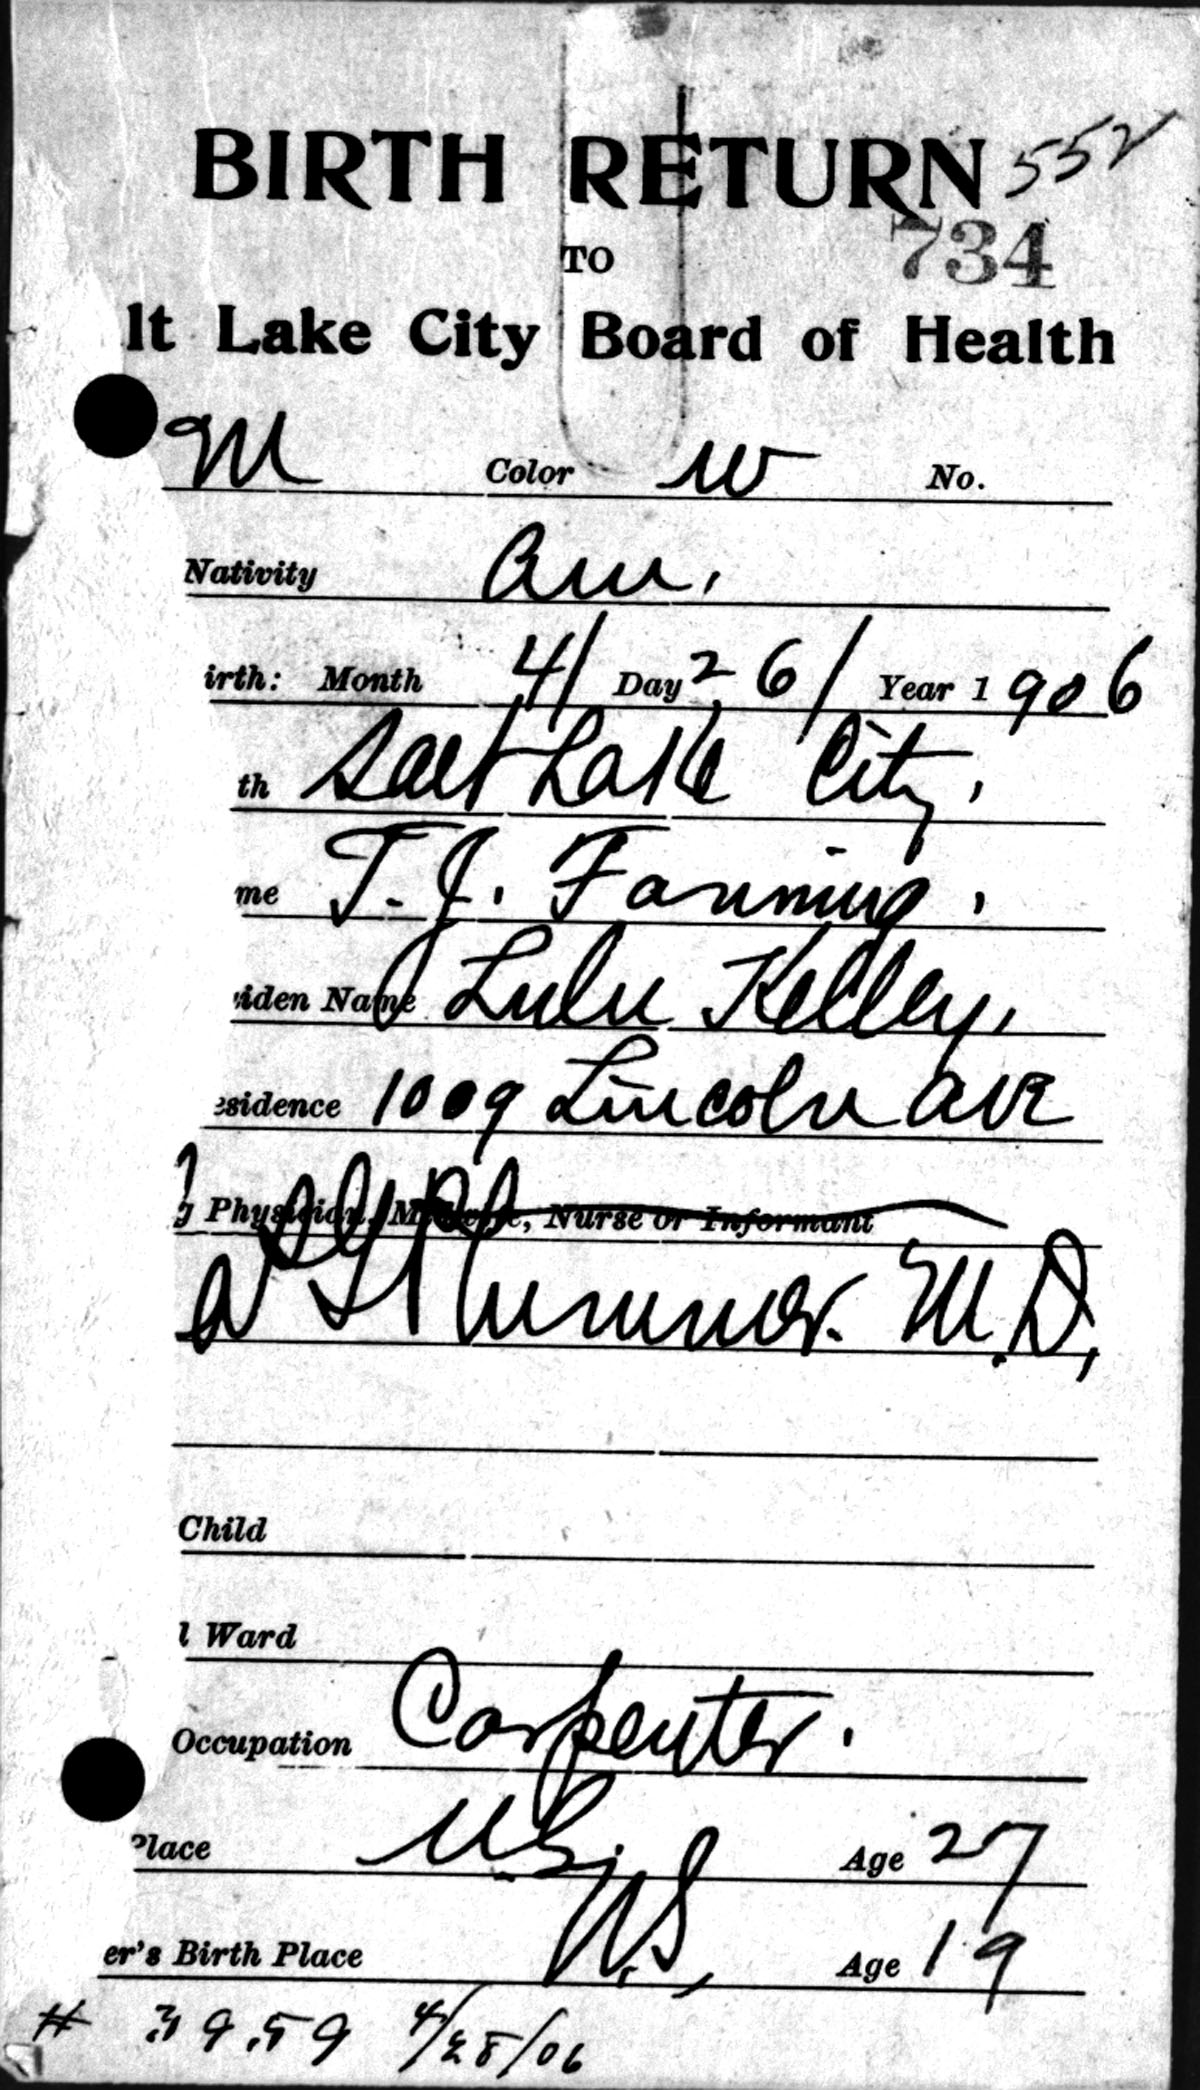 BIRTH RETURN 552
TO 734
lt Lake City Board of Health
M Color W No.
Nativity Am.
irth: Month 4/ Day 26/ Year 1906
th Salt Lake City.
me T. J. Fanning.
iden Name Lulu Kelley,
esidence 1009 Lincoln ave
g Physician, Midwife, Nurse or Informant
M.D.
Child
l Ward
Occupation Carpenter.
Place U.S. Age 27
er's Birth Place U.S., Age 19
# 3959 4/28/06